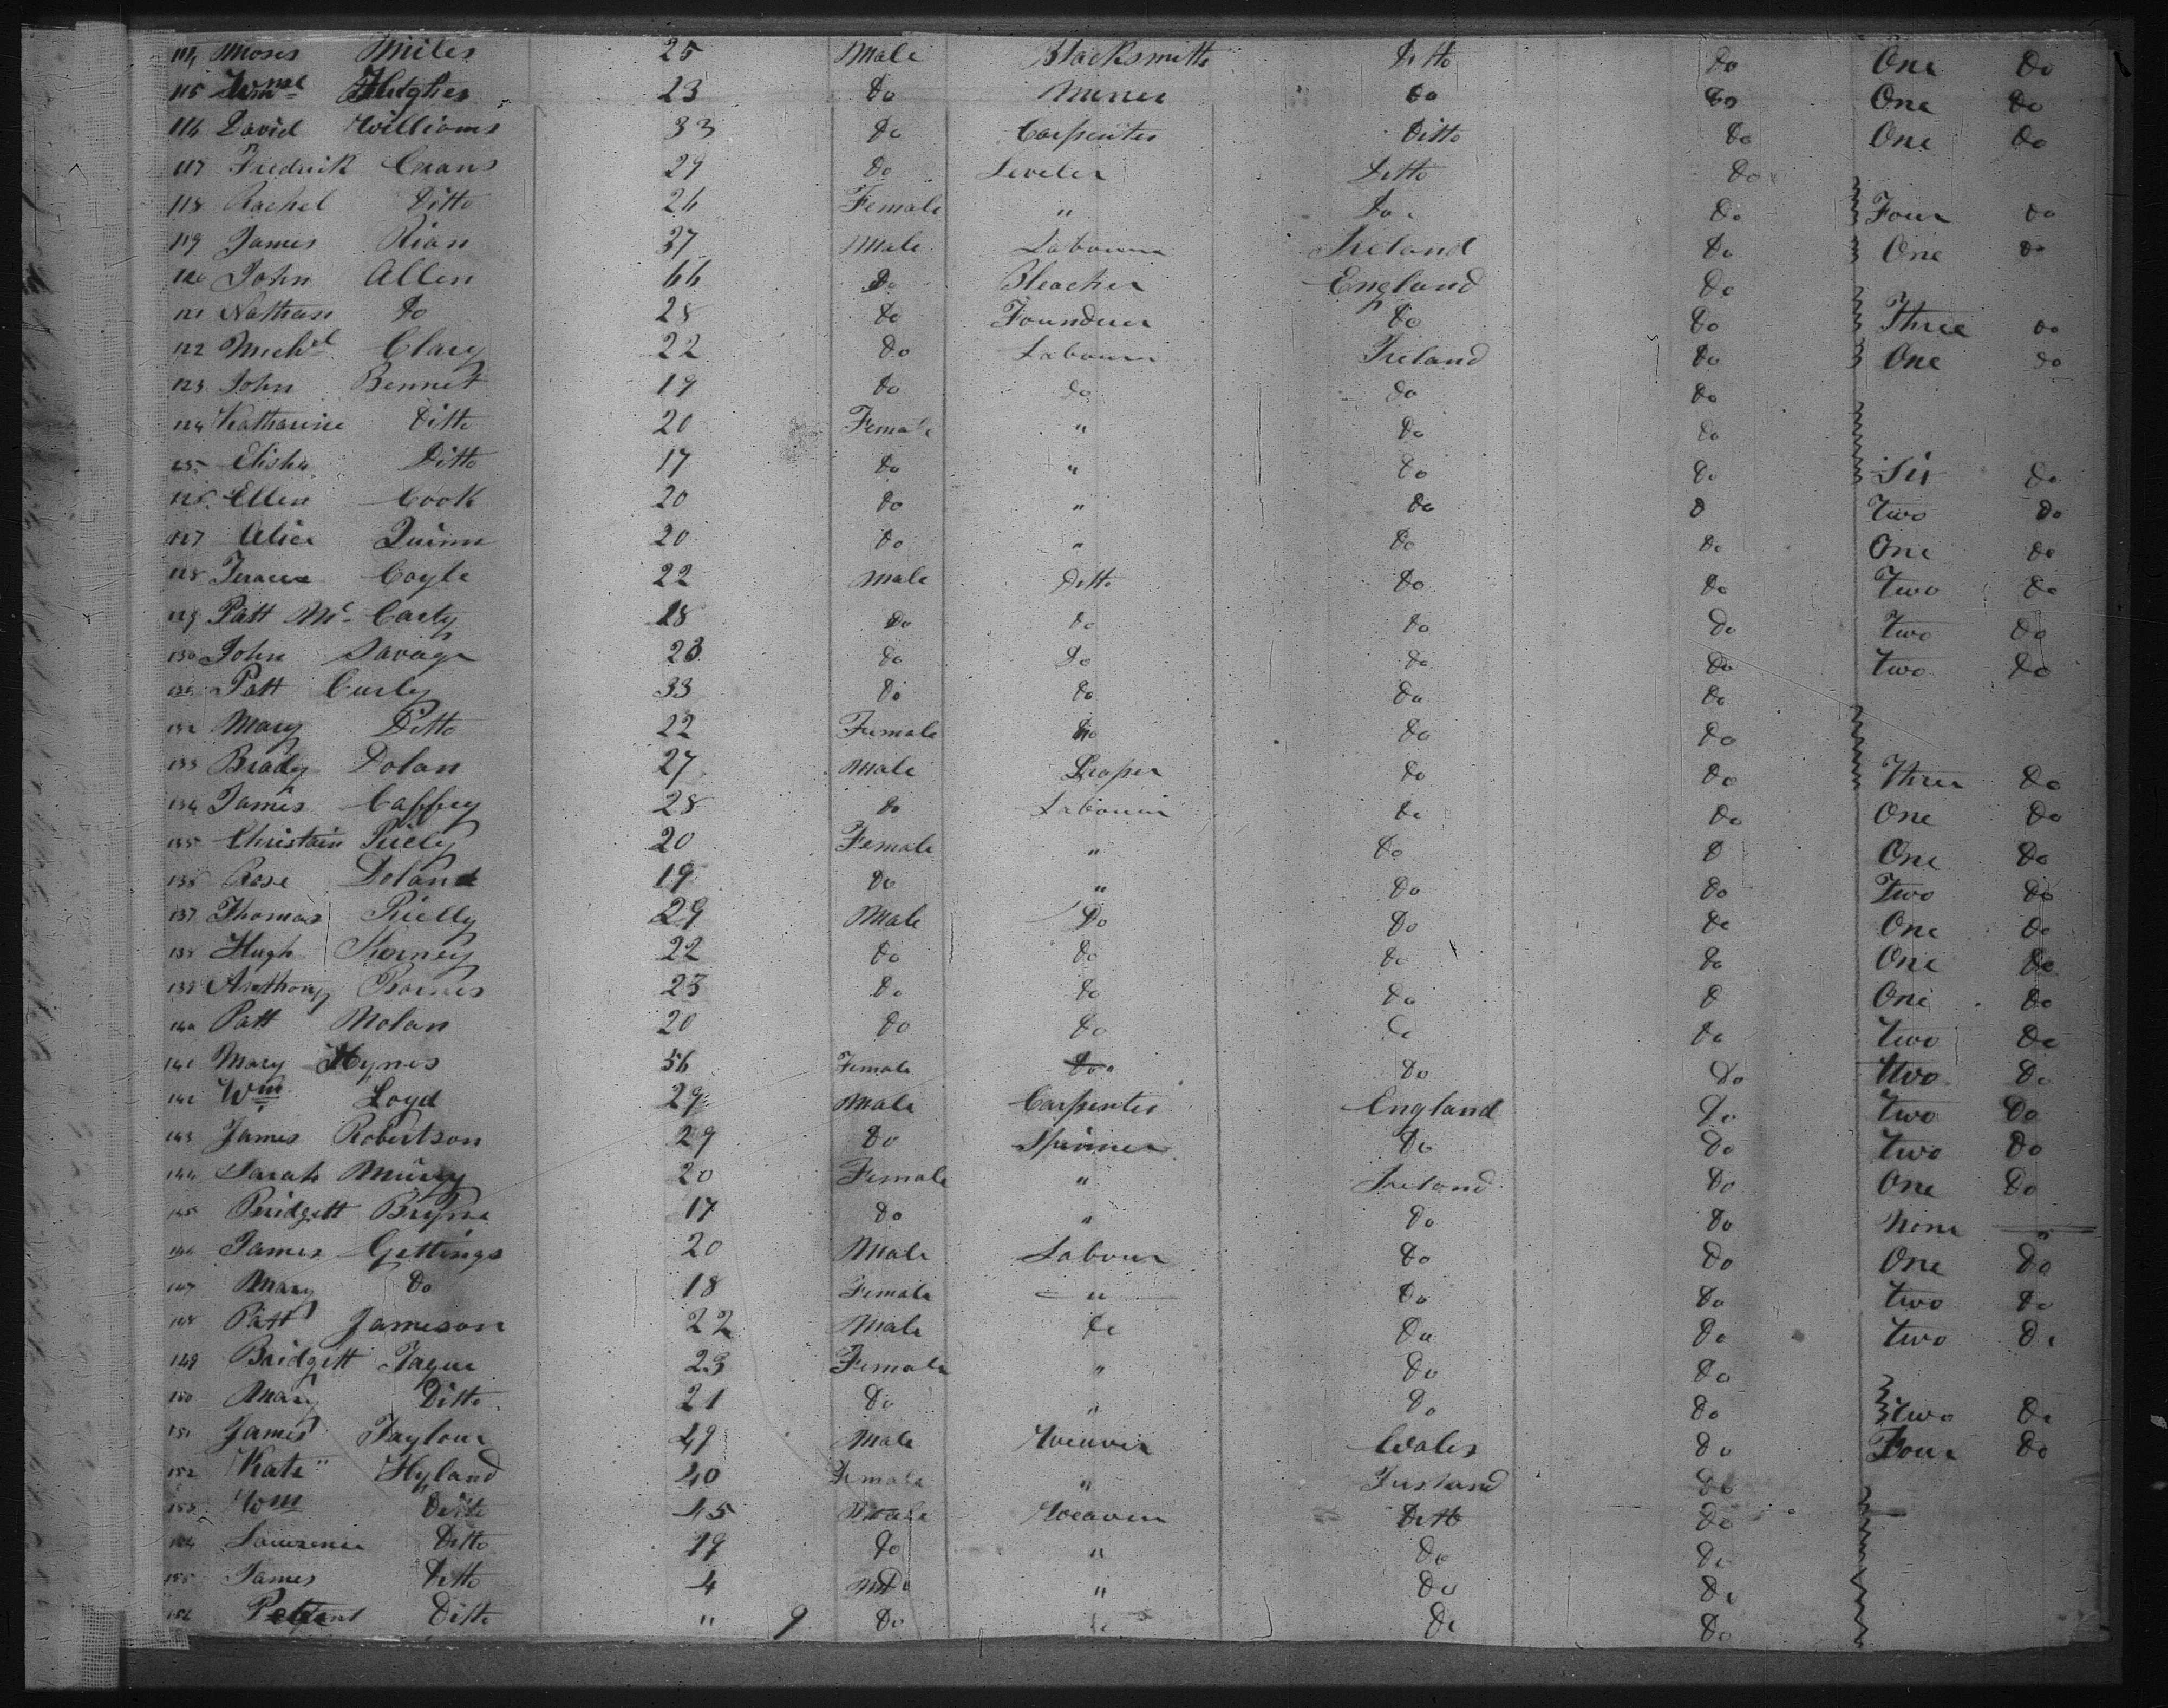 114 Moses Miles 25 Male Blacksmith Ditto Do One Do
115 Hughes 23 Do Miner Do Do One Do
116 David Williams 33 Do Carpenter Ditto Do One Do
117 Fredrick 29 Do Leveler Ditto Do
118 Rachel Ditto 26 Female " Do Do Four Do
119 James Rian 37 Male Labourer Ireland Do One Do
120 John Allen 66 Do Bleacher England Do
121 Nathan Do 28 Do Founderer Do Do Three Do
122 Michel Clary 22 Do Labourer Ireland Do One Do
123 John Bennet 19 Do do Do Do
124 Katharine Ditto 20 Female " Do Do
125 Elisha Ditto 17 Do " Do Do Six Do
126 Ellen Cook 20 Do " Do D Two Do
127 Alice Quinn 20 Do " Do Do One Do
128 Coyle 22 Male Ditto Do Do Two Do
129 Patt Mc Carty 18 Do Do Do Do Two Do
130 John Savage 23 Do Do Do Do Two Do
131 Patt Curly 33 Do Do Do Do
132 Mary Ditto 22 Female Do Do
133 Brady Dolan 27 Male Do Do Three Do
134 James Caffrey 28 Do Labourer Do Do One Do
135 Christain Riely 20 Female " Do D One Do
136 Rose Doland 19 Do " Do Do Two Do
137 Thomas Rielly 29 Male Do Do Do One Do
138 Hugh 22 Do Do Do Do One Do
139 Anthony 23 Do Do Do D One Do
140 Patt Molan 20 Do Do Do Do Two Do
141 Mary Hynes 56 Female Do Do Two Do
142 Wm Loyd 29 Male Carpenter England Do Two Do
143 James Robertson 29 Do Spinner Do Do Two Do
144 Sarah Murry 20 Female " Ireland Do One Do
145 Bridgett Bryne 17 Do " Do Do None "
146 James Gettings 20 Male Labour Do Do One Do
147 Mary Do 18 Female " Do Do Two Do
148 Patt Jameson 22 Male Do Do Do Two Do
149 Bridgett Tague 23 Female " Do Do
150 Mary Ditto 21 Do " Do Do Two Do
151 James Taylour 49 Male Weaver Wales Do Four Do
152 Kate Hyland 40 Female " Do
153 Wm Ditto 45 Male Weaver Ditto Do
154 Lawrence Ditto 19 Do " Do Do
155 James Ditto 4 Do " Do Do
156 Ditto " 9 Do Do Do